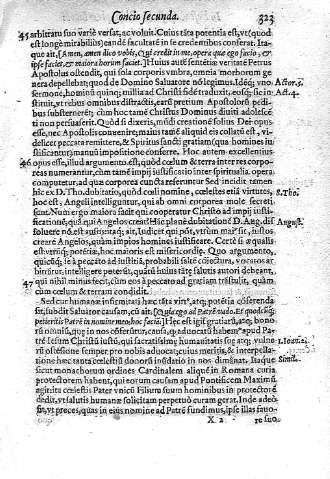 Concio secunda. 323
45 arbitratu suo variè versat, ac voluit. Cuius tāta potentia est, vt (quod
est longè mirabilius) eandē facultatē in se credentibus conferat. Ita-
que ait, Amen, amen dico vobis, qui credit in me, opera quæ ego facio, &
ipse faciet, & maiora horum faciet. Huius autē sententiæ veritatē Petrus
Apostolus ostendit, qui sola corporis vmbra, omnia morborum ge
nera depellebat; quod de Domino Saluatore nō legimus. Idēq; vno Actor. 5.
sermone, hominū quinq; millia ad Christi fidē traduxit, eosq; sic in Act. 4.
stituit, vt rebus omnibus distractis, earū pretium Apostolorū pedi
bus substernerēt; cum hoc tamē Christus Dominus diuiti adolescē
ti non persuaserit. Quòd si dixeris, mūdi creationē solius Dei opus
esse, nec Apostolis conuenire; maius tamē aliquid eis collatū est, vi-
delicet peccata remittere, & Spiritus sancti gratiam (qua homines iu
stificantur) manuū impositione conferre. Hoc autem excellentius
46 opus esse, illud argumento est, quòd cœlum & terra inter res corpo-
reas numerantur, cum tamē impij iustificatio inter spiritualia opera
computetur, ad quæ corporea cuncta referuntur. Sed incidit temen
hîc ex D. Tho. dubitatio, quòd cœlum, cœlestes etiā virtutes, S. Tho.
hoc est, Angeli intelliguntur, qui ab omni corporea mole secreti
sunt. Num ergo maiora facit qui cooperatur Christo ad impij iusti-
ficationē, quàm sit creare Angelos? Hanc planè dubitationē D. Aug. dis August.
soluere nō est ausus: itaq; ait, Iudicet qui pōt, vtrùm mai9 sit, iustos
creare Angelos, quàm impios homines iustificare. Certè si æqualis
est vtriusq; potētiæ, hoc maioris est misericordiæ. Quo argumento,
quicūq; iā à peccato ad iustitiā, probabili fide se cōiecturis, vocatos ar-
bitrātur, intelligere poterūt, quātū huius tātę salutis autori debeant,
47 qui nihil minus fecit, cum eos à peccato ad gratiam trāstulit, quàm
cum cœlum & terram condidit.
Sed cur humanæ infirmitati hæc tāta virt9, atq; potētia cōserenda
sit, subdit Saluator causam, cū ait, Quia ego ad Patrē vado. Et quodcūq;
petieritis Patrē in nomine meo, hoc faciā. Hęc est igif gratiarū, atq; bono
rū omniū, quę in nos cōferūtur, causa, quia aduocatū habem9 apud Pa
trē Iesum Christū iustū, qui sacratissimę humanitatis suę atq; vulne 1. Ioan. 2.
rū ostēsione semper pro nobis aduocat; cuius meritis, & interpellatio-
ne hęc tanta cœlestiū donorū inūdatio in nos dimanat. Itaque Simile.
sicut monachorum ordines Cardinalem aliquē in Romana curia
protectorem habent, qui eorum causam apud Pontificem Maximū
agit: ita cœlestis Pater vnicū Filium suum hominibus in protectorē
dedit, vt salutis humanæ solicitam perpetuò curam gerat. Inde adeò
fit, vt preces, quas in eius nomine ad Patrē fundimus, ipse illas fauo-
X 2 re suo,